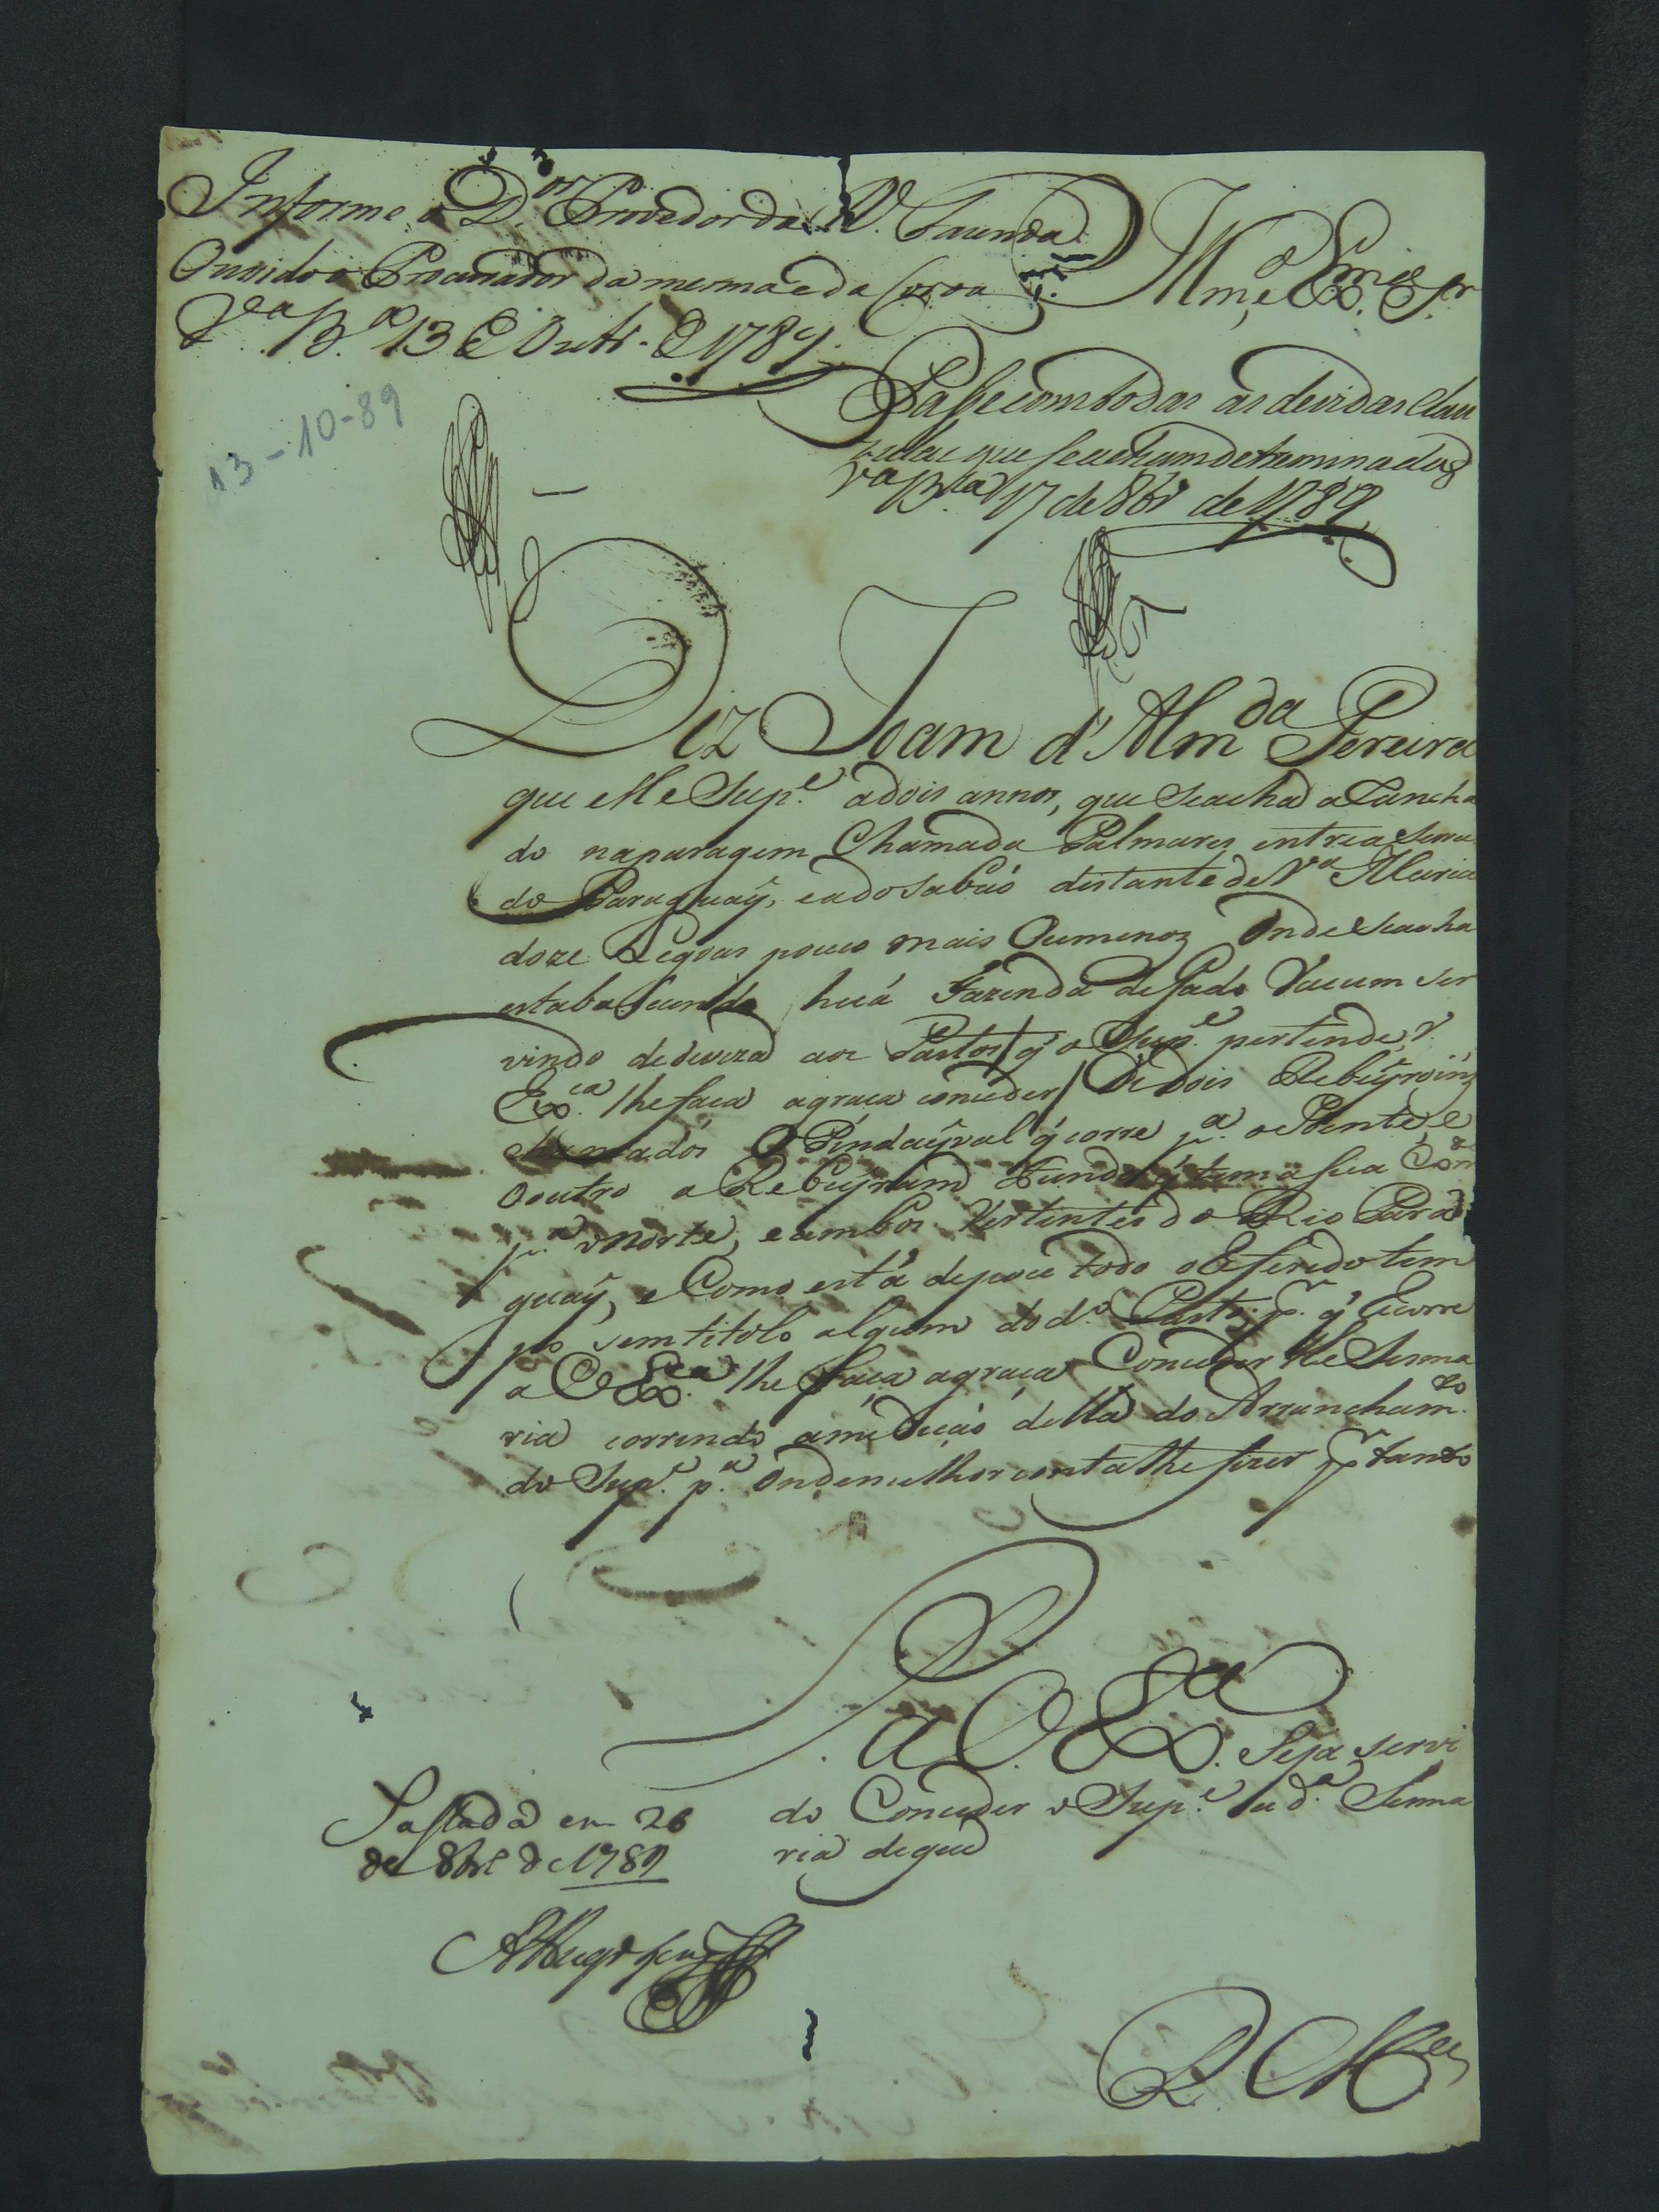 Informe o D.or Provedor da R. Fazenda
Ouvido o Procurador da mesma e da Coroa
V.a B.a 13 de Outr.o de 1789.
13-10-89
Illm.o e Exm.o Sr.
Passe com todas as devidas clau
zulas que se acham detreminadas
V.a B.la 17 de 8br.o de 1789
Diz Joam d'Alm.da Pereira
que elle Sup.e a dois annos, que se acha aRancha
do na paragem Chamada Palmares entre a Serra
do Paraguaÿ, e a do Sabaó distante de V.a Maria
doze Legoas pouco mais Oumenoz Onde se acha
estabaLecendo huá Fazenda de Gado Vacum ser
vindo de deveza aos Pastos / q' o Sup.e pertende, V.
Ex.ca lhe faca a graca conceder / Os dois Rebeÿroins
chamados O Pindaÿval q' corre p.a o Poente, e
o outro o Rebeÿram Fundo q' tem a sua
p.a o Norte, e ambos Vertentes do Rio Para
guaÿ, e Como está de poce todo o Referido tem
po sem titolo algum do d.o Pasto; p.r q' Recorre
a V. Ex.ca lhe faça a graça Conceder lhe Sesma
ria correndo a mediçaó della do Arrancham.to
do Sup.e p.a Onde melhor conta lhe fizer p.r tanto
P.
a V. Ex.a Seja servi
do Conceder o Sup.e a d.a Sesma
ria de que
Passada em 26
de 8br.e de 1789
R. M.ce